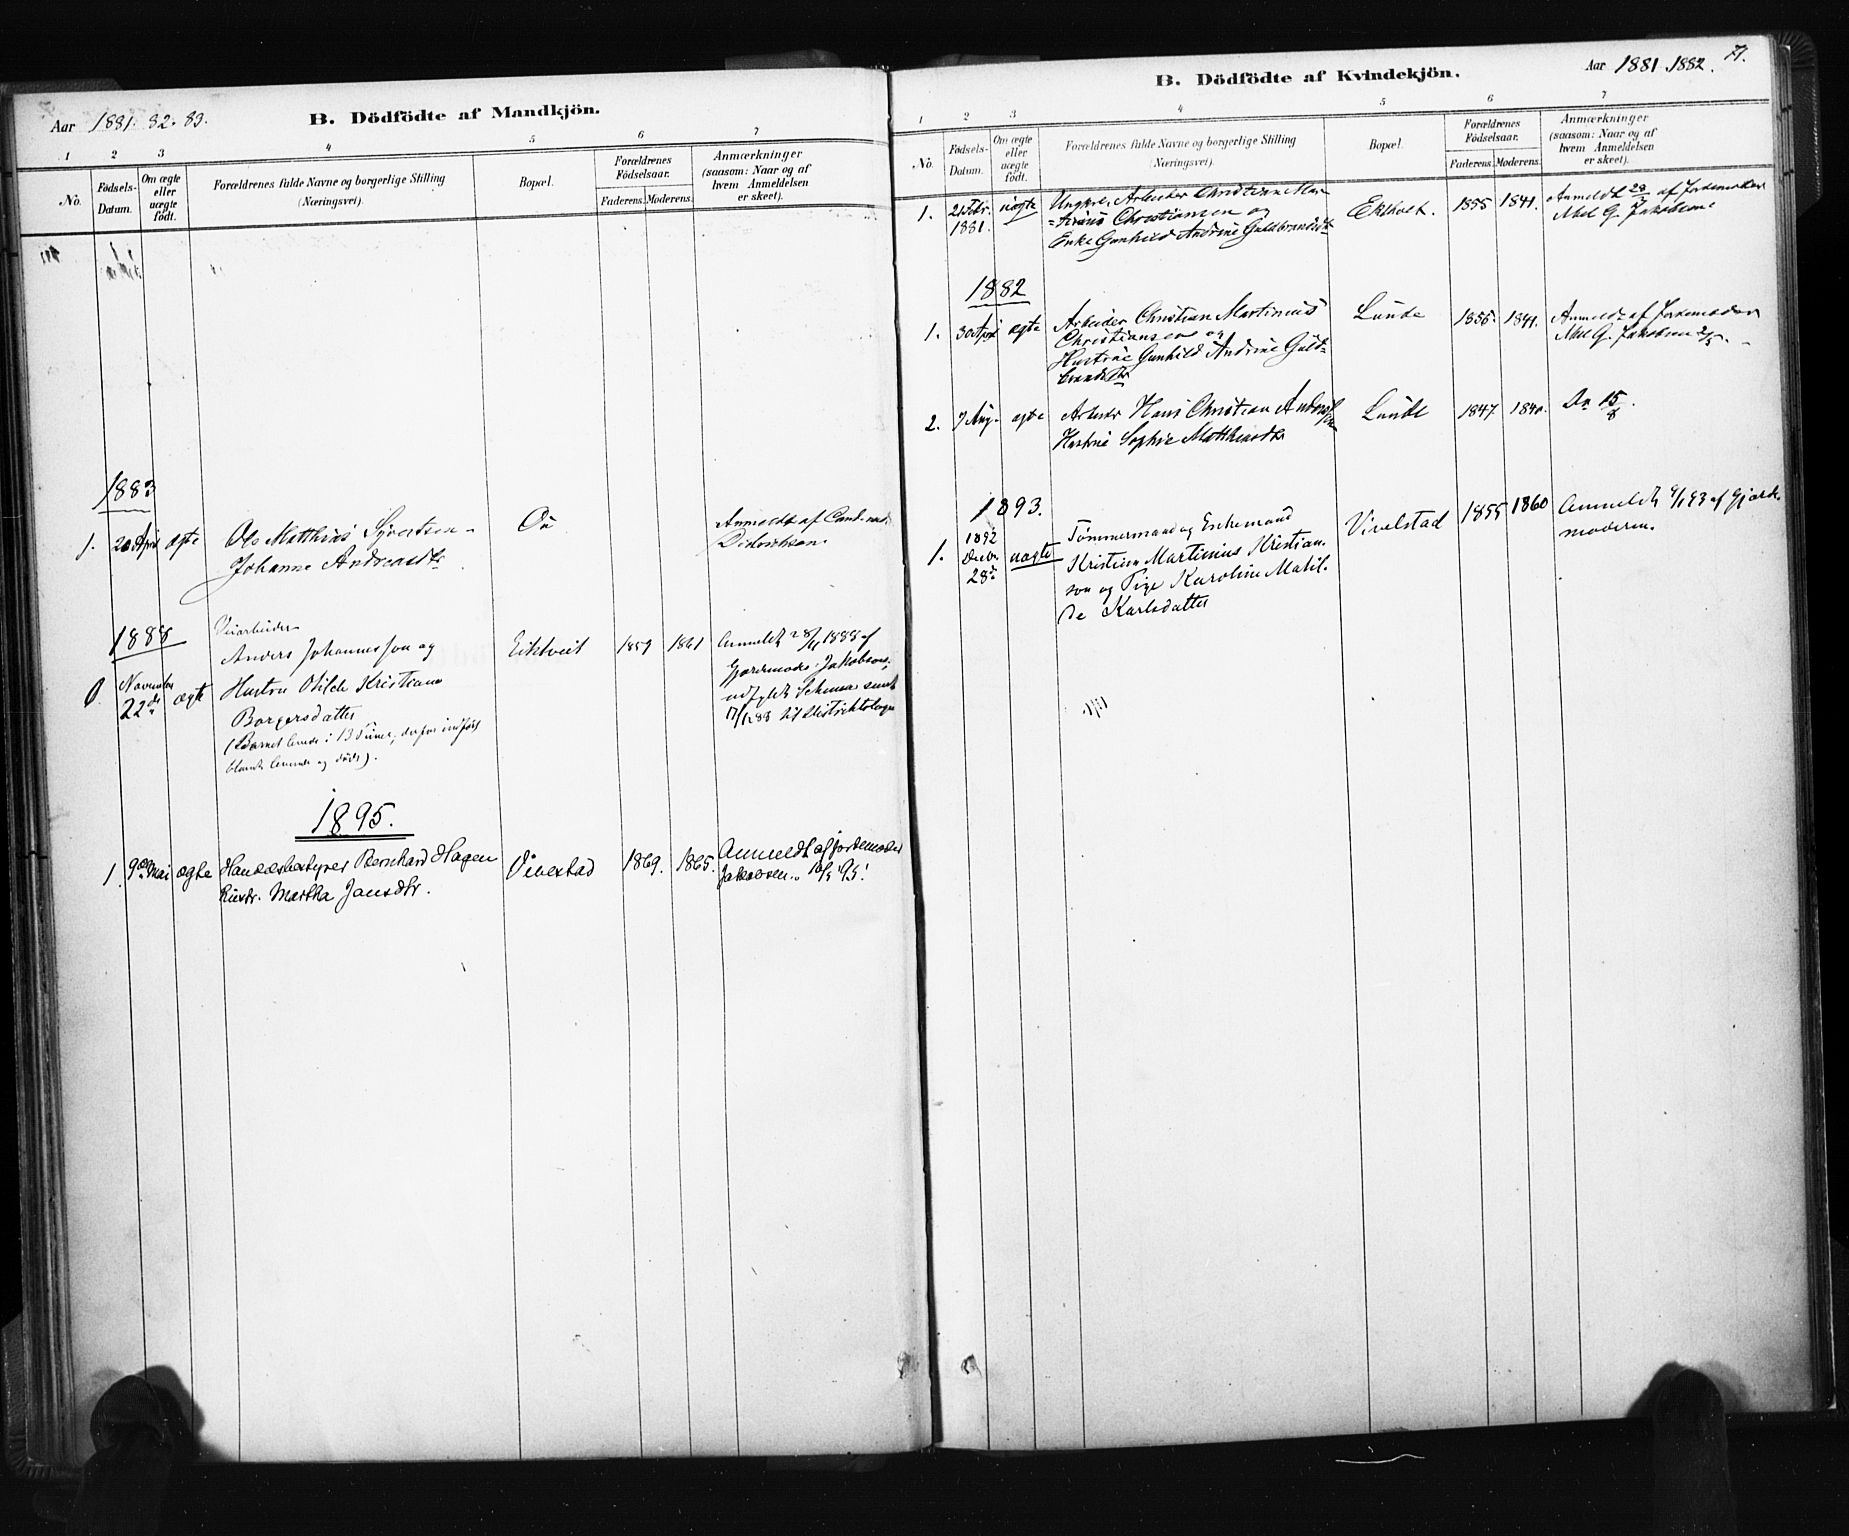 Aar 1881. 82. 83.
B. Dödfödte af Mandkjön.
1 2 3 4 5 6 7
No.
Födsels-
Datum.
Om ægte
eller
uægte
födt.
Forældrenes fulde Navne og borgerlige Stilling
(Næringsvei).
Bopæl.
Forældrenes
Födselsaar.
Faderens. Moderens.
Anmærkninger
(saasom: Naar og af
hvem Anmeldelsen
er skeet).
1883
1. 20 April ægte
Ole Matthias Syvertsen
Johanne Andreasdtr
Anmeldt af
1888
November
22de
ægte
Veiarbeider
Anders Johannesson og
Hustru Otilde Kristiane
Borgersdatter
(Barnet levede i 13 Timer, derfor indført
blandt levende og døde).
Eikeveit
1859 1861
Anmeldt 28/11 1888 af
Gjordemoder Jakobsen,
udfyldt Schema sendt
til Distriktslægen
1895.
1. 9de Mai ægte
Handelsbestyrer Bernhard Hagen
Hustr. Martha Jansdtr.
Vivestad
1869. 1865.
Anmeldt af jordemoder
Jakobsen 10/5 95!
B. Dödfödte af Kvindekjön.
Aar 1881. 1882.
71.
1 2 3 4 5 6 7
No.
Födsels-
Datum.
Om ægte
eller
uægte
födt.
Forældrenes fulde Navne og borgerlige Stilling
(Næringsvei).
Bopæl.
Forældrenes
Födselsaar.
Faderens. Moderens.
Anmærkninger
(saasom: Naar og af
hvem Anmeldelsen
er skeet).
1. 21 Febr.
1881.
uægte
Ungkrl. Arbeider Christian Mar-
=tinius Christiansen og
Enke Gunhild Andrine Guldbrandsdtr
Ekholt.
1855 1841.
Anmeldt af Jordemoder
G. Jakobsen
1882
1. 30 April ægte
Arbeider Christian Martinius
Christiansen og
Hustrue Gunhild Andrine Guld-
brandsdtr
Lunde
1855. 1841.
Anmeldt af Jordemoder
G. Jakobsen 2/5.
2. 7 Aug. ægte
Arbeider Hans Christian Anders
sen
Hustrue Sophie Matthiasdtr
Lunde
1847. 1840.
Do 15/8.
1893.
1. 1892
Decbr.
28de
uægte
Tømmermand og Enkemand
Kristian Martinius Kristian-
sen og Pige Karoline Matil-
de Karlsdatter
Vivelstad
1855 1860
Anmeldt 9/1 93 af Gjorde-
moderen.